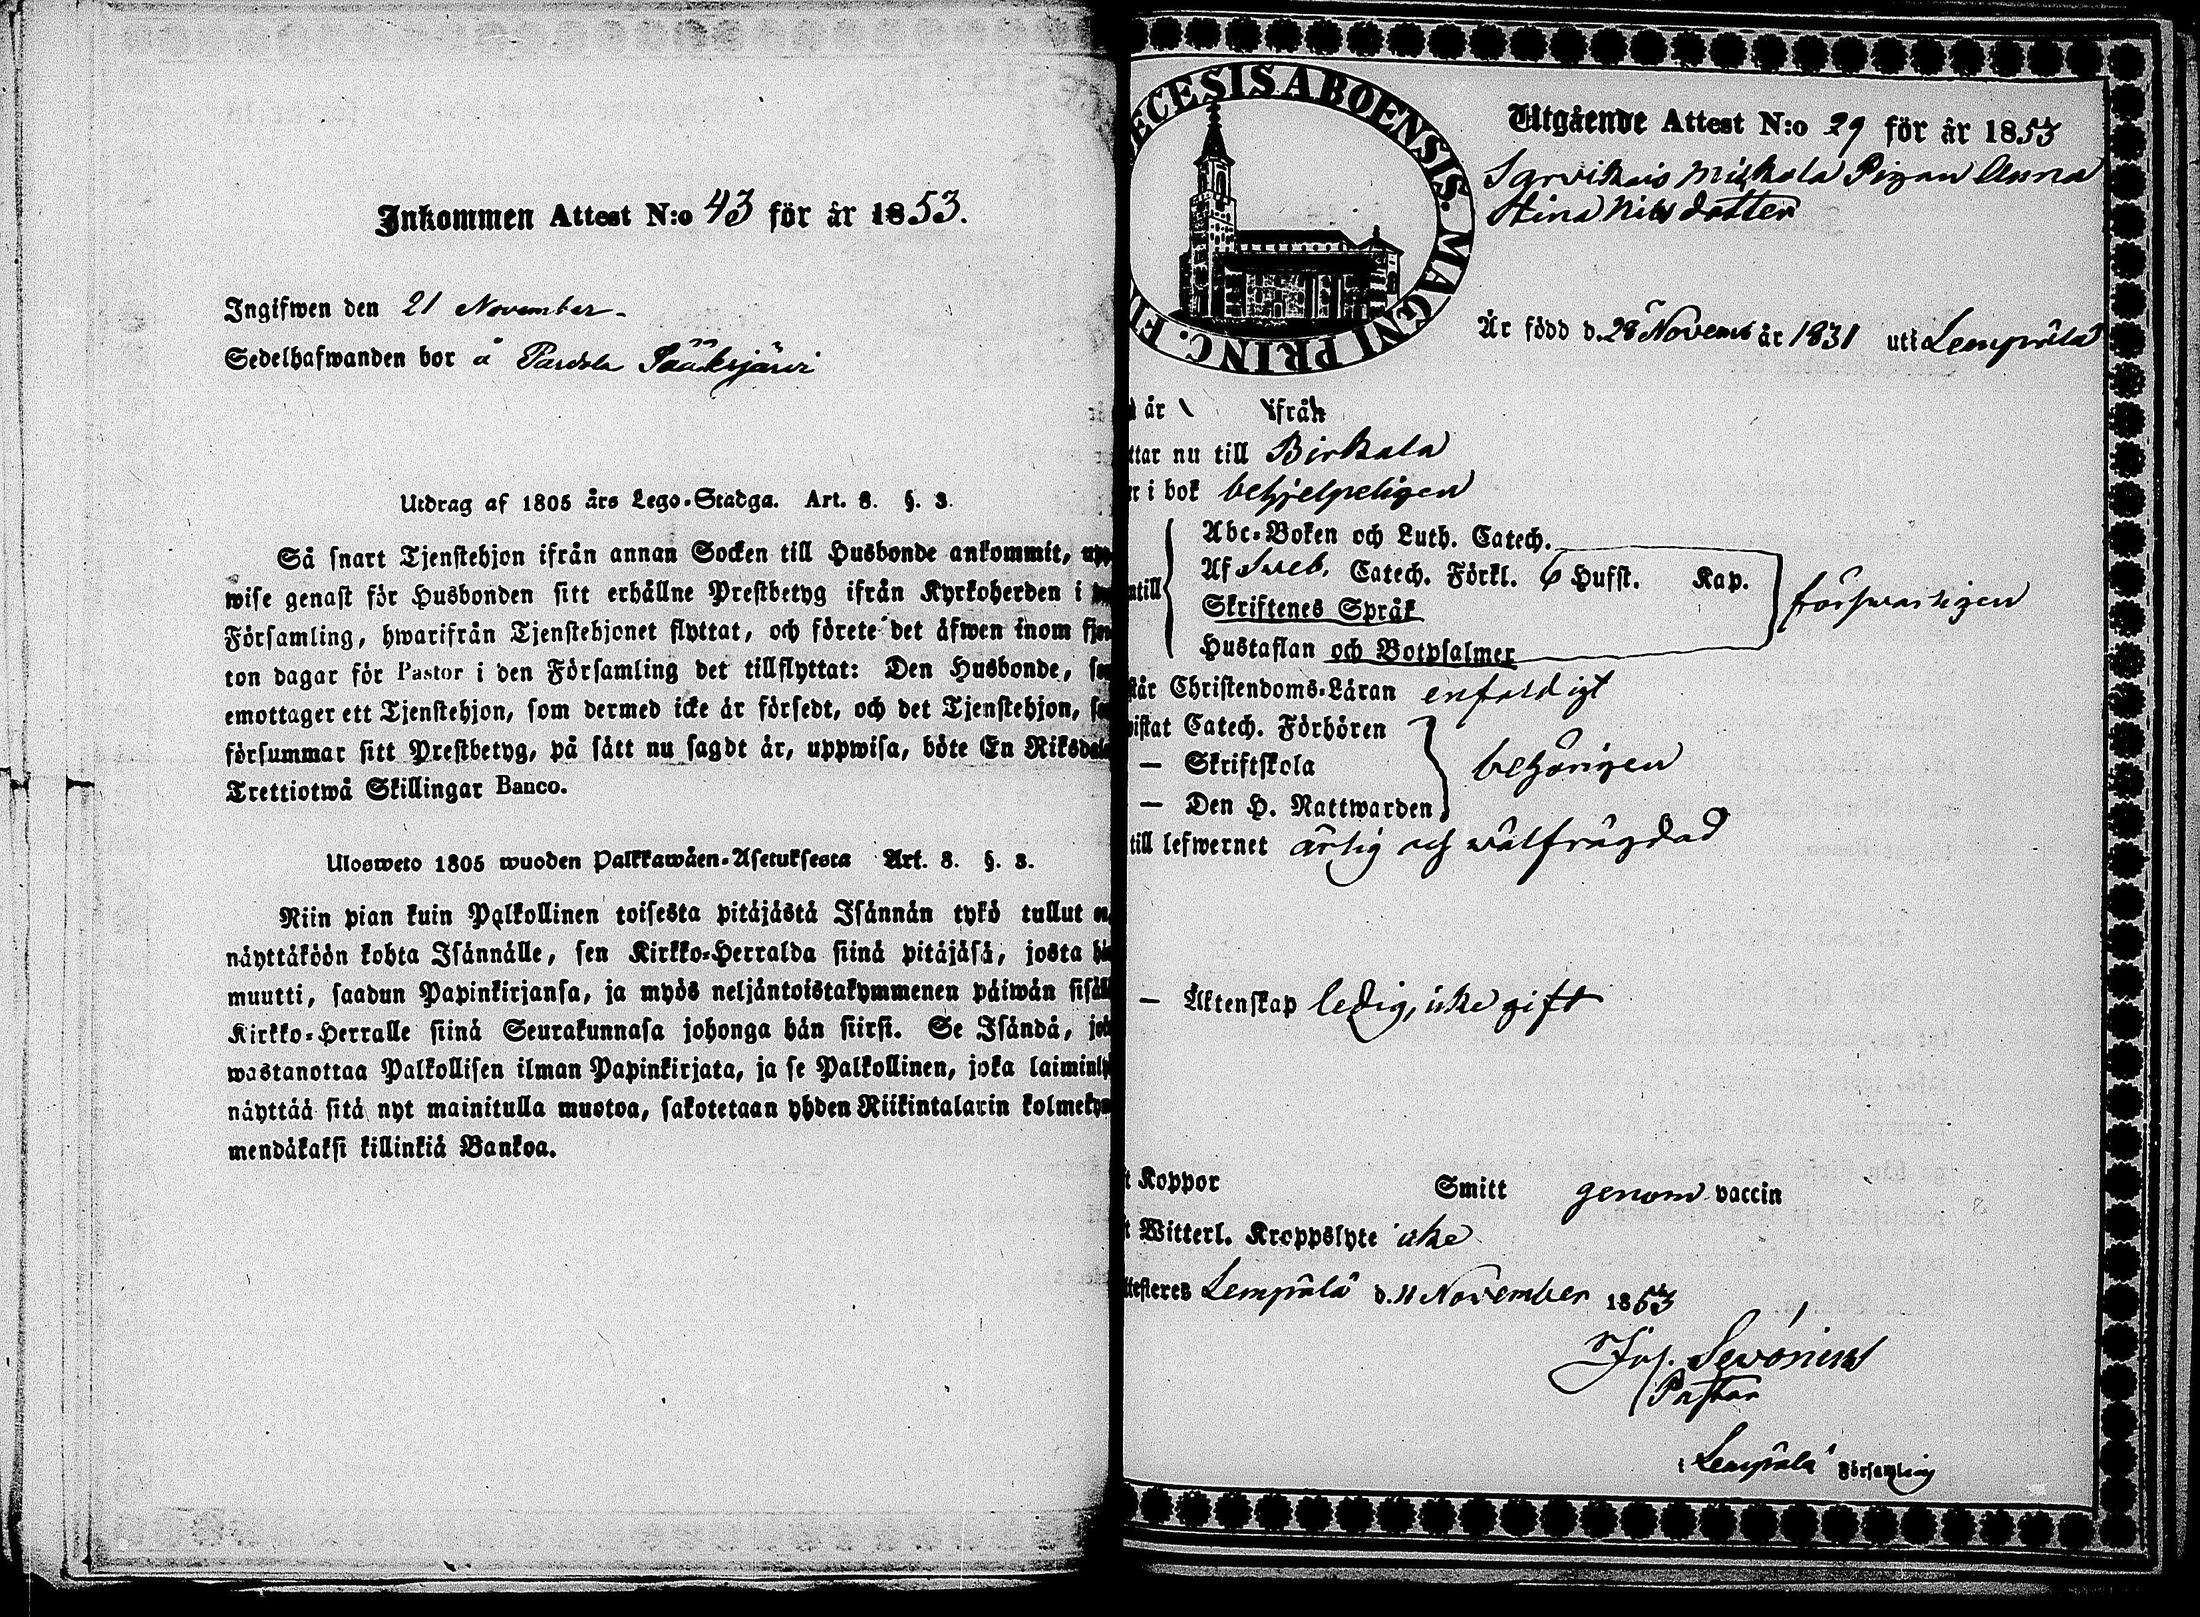 Inkommen Attest N:o 43 för år 1853.
Ingifwen den 21 November.
Sedelhafwanden bor å Pardola Sääksjärvi
Utdrag af 1805 års Lego-Stadga. Art. 8. §. 3.
Så snart Tjenstehjon ifrån annan Socken till Husbonde ankommit, upp-
wise genast för Husbonden sitt erhållne Prestbetyg ifrån Kyrkoherden i
Församling, hwarifrån Tjenstehjonet flyttat, och förete det äfwen inom fjor
ton dagar för Pastor i den Församling det tillflyttat: Den Husbonde, so
emottager ett Tjenstehjon, som dermed icke är försedt, och det Tjenstehjon, so
försummar sitt Prestbetyg, på sätt nu sagdt är, uppwisa, böte En Riksdale
Trettiotwå Skillingar Banco.
Ulosweto 1805 wuoden Palkkawäen-Asetuksesta Art. 8. §. 3.
Niin pian kuin Palkollinen toisesta pitäjästä Isännän tykö tullut on,
näyttäköön kohta Isännälle, sen Kirkko-Herralda siinä pitäjäsä, josta hän
muutti, saadun Papinkirjansa, ja myös neljäntoistakymmenen päiwän sisäll
Kirkko-Herralle siinä Seurakunnasa johonga hän siirsi. Se Isändä, jok
wastanottaa Palkollisen ilman Papinkirjata, ja se Palkollinen, joka laiminly
näyttää sitä nyt mainitulla muotoa, sakotetaan yhden Riikintalarin kolmekym
mendäkaksi killinkiä Bankoa.
ECESIS ABOENSIS. MAGNI PRINC. FI
Utgående Attest N:o 29 för år 1853
Sarvikais Mickola Pigan Anna
Stina Nilsdotter
Är född d. 28 Novemb år 1831 uti Lempälä
är ifrån
ttar nu till Birkala
r i bok behjelpeligen
Abc-Boken och Luth. Catech.
ntill Af Sveb. Catech. Förkl. 6 Hufst. Kap. försvarligen
Skriftenes Språk
Hustaflan och Botpsalmer
står Christendoms-Läran enfaldigt
wistat Catech. Förhören
— Skriftskola behörigen
— Den H. Nattwarden
till lefwernet ärlig och välfrägdad
— Äktenskap ledig, icke gift
t Koppor Smitt genom vaccin
t Witterl. Kroppslyte icke
ttesteres Lempälä d. 11 November 1853
Jos. Sevonius
Pastor
i Lempälä Församling